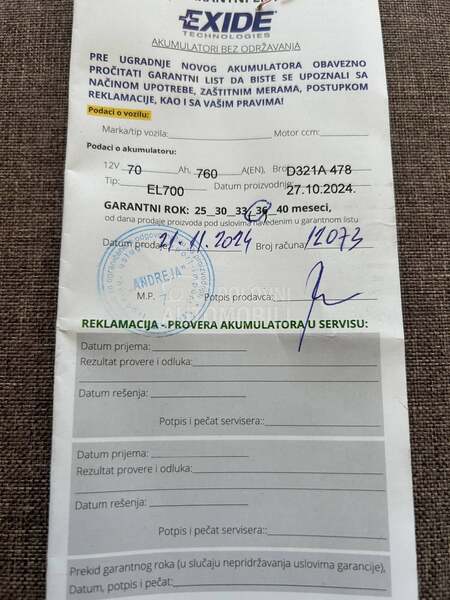 GARANTNI LIST
EXIDE
TECHNOLOGIES
AKUMULATORI BEZ ODRŽAVANJA
PRE UGRADNJE NOVOG AKUMULATORA OBAVEZNO
PROČITATI GARANTNI LIST DA BISTE SE UPOZNALI SA
NAČINOM UPOTREBE, ZAŠTITNIM MERAMA, POSTUPKOM
REKLAMACIJE, KAO I SA VAŠIM PRAVIMA!
Podaci o vozilu:
Marka/tip vozila: Motor ccm:
Podaci o akumulatoru:
12V 70 Ah, 760 A(EN), Broj D321A 478
Tip: EL700 Datum proizvodnje 27.10.2024.
GARANTNI ROK: 25 30 33 36 40 meseci,
od dana prodaje proizvoda pod uslovima navedenim u garantnom listu
Datum prodaje 21.11.2024 Broj računa 12073
ANDREJA
M.P. Potpis prodavca:
POLOVNI
AUTOMOBILI
REKLAMACIJA - PROVERA AKUMULATORA U SERVISU:
Datum prijema:
Rezultat provere i odluka:
Datum rešenja:
Potpis i pečat servisera::
Datum prijema:
Rezultat provere i odluka:
Datum rešenja:
Potpis i pečat servisera::
Prekid garantnog roka (u slučaju nepridržavanja uslovima garancije),
Datum, potpis i pečat: